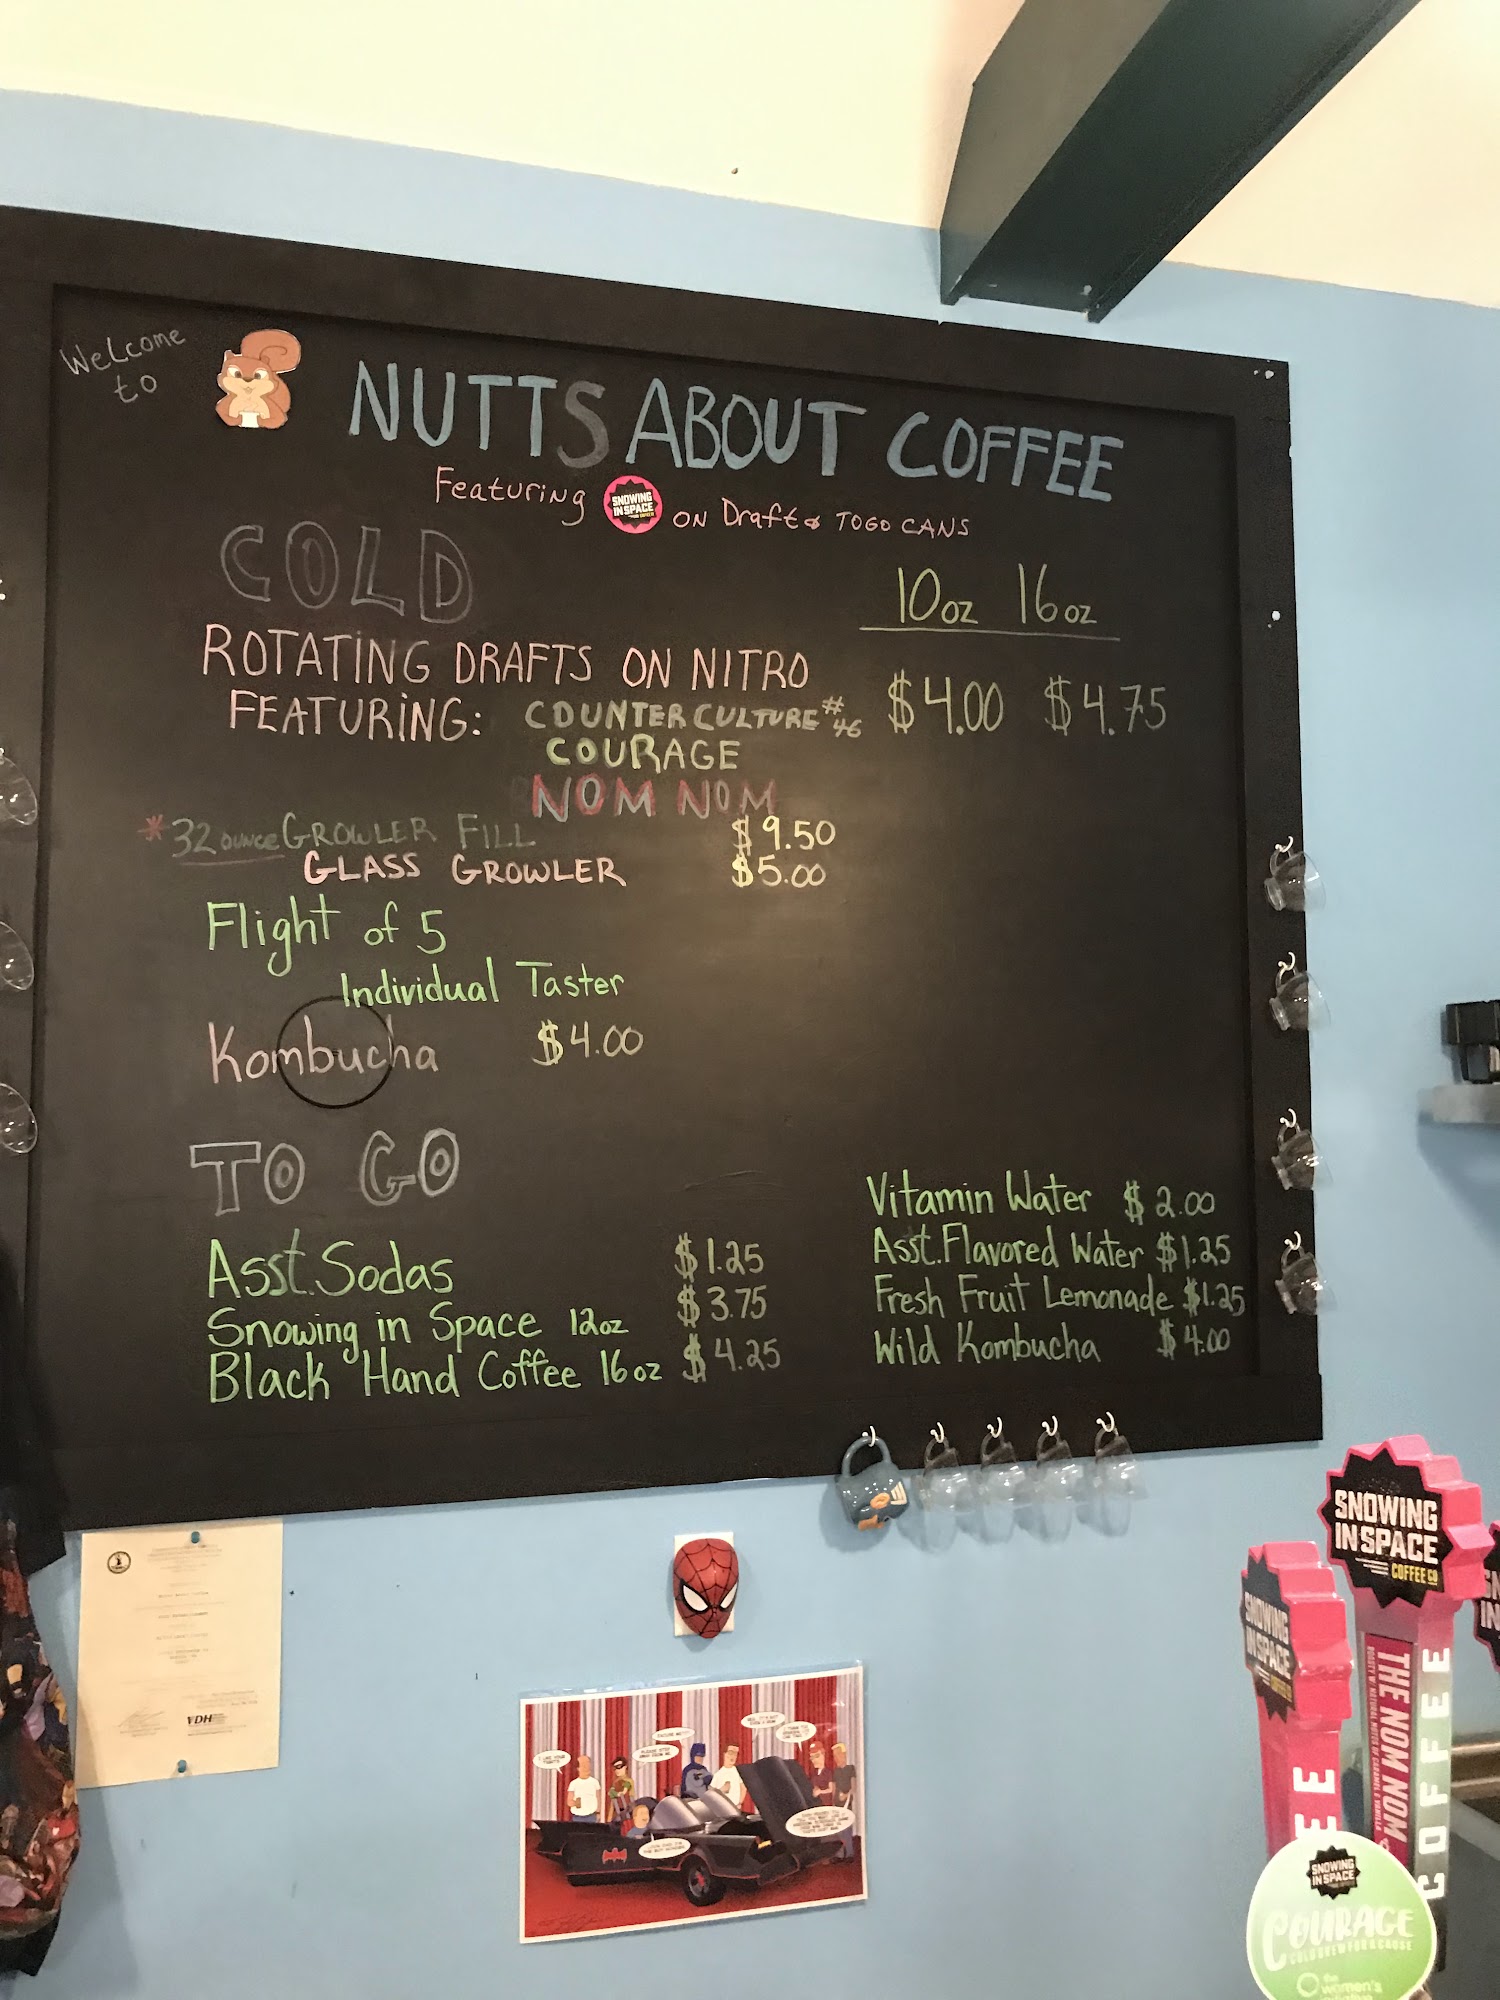 Welcome
to
NUTTS ABOUT COFFEE
Featuring SNOWING IN SPACE ON Draft & TOGO CANS
COLD
10oz 16oz
ROTATING DRAFTS ON NITRO
FEATURING: COUNTER CULTURE #46 $4.00 $4.75
COURAGE
NOM NOM
*32 ounce GROWLER FILL $9.50
GLASS GROWLER $5.00
Flight of 5
Individual Taster
Kombucha $4.00
TO GO
Asst. Sodas $1.25
Snowing in Space 12oz $3.75
Black Hand Coffee 16oz $4.25
Vitamin Water $2.00
Asst. Flavored Water $1.25
Fresh Fruit Lemonade $1.25
Wild Kombucha $4.00
VDH
SNOWING
IN SPACE
COFFEE CO
THE NOM NOM
COFFEE
SNOWING
IN SPACE
EE
SNOWING
IN SPACE
COURAGE
COLD BREW FOR A CAUSE
the
women's